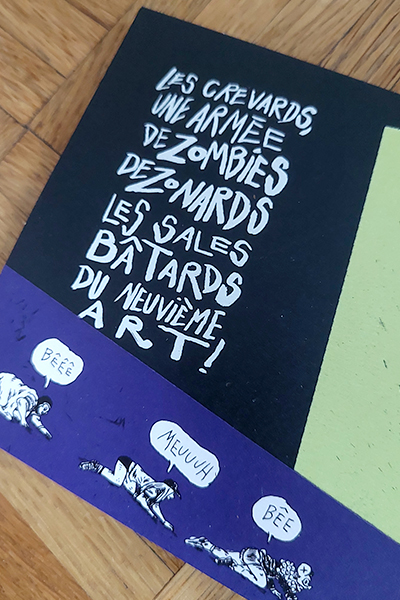 LES CREVARDS,
UNE ARMÉE
DE ZOMBIES
DEZONARDS
LES SALES
BÂTARDS
DU NEUVIÈME
ART!
BÊÊÊ
MEUUUH
BÊE